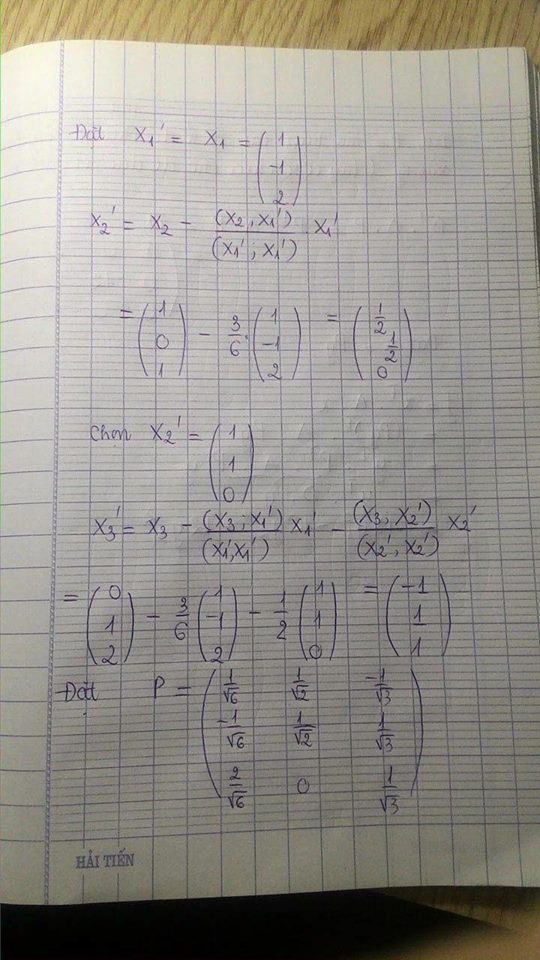 Đặt X₁' = X₁ = (1 -1 2)
X₂' = X₂ - (X₂, X₁')/(X₁'; X₁') . X₁'
= (1 0 1) - 3/6 . (1 -1 2) = (1/2 1/2 0)
Chọn X₂' = (1 1 0)
X₃' = X₃ - (X₃; X₁')/(X₁', X₁') X₁' - (X₃, X₂')/(X₂', X₂') X₂'
= (0 1 2) - 3/6 (1 -1 2) - 1/2 (1 1 0) = (-1 1 1)
Đặt P = (1/√6 1/√2 -1/√3
-1/√6 1/√2 1/√3
2/√6 0 1/√3)
HẢI TIẾN